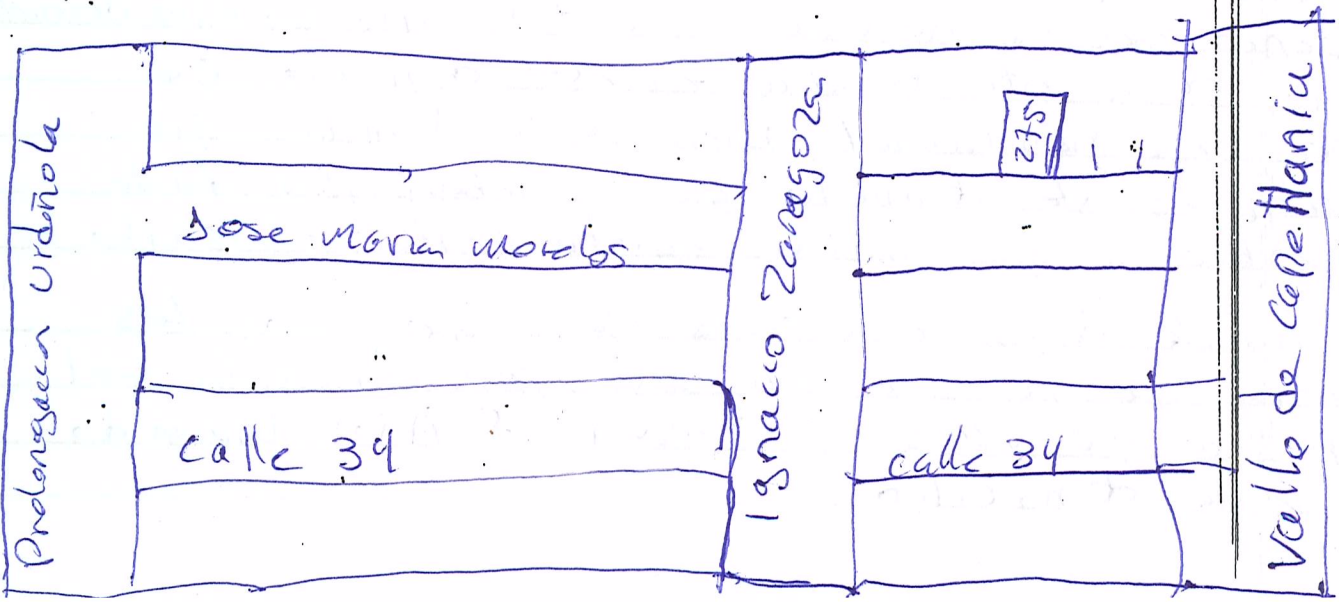 Prolongacion Urdeñola
Jose Maria Morelos
calle 34
Ignacio Zaragoza
275
calle 34
Valle de Capellania